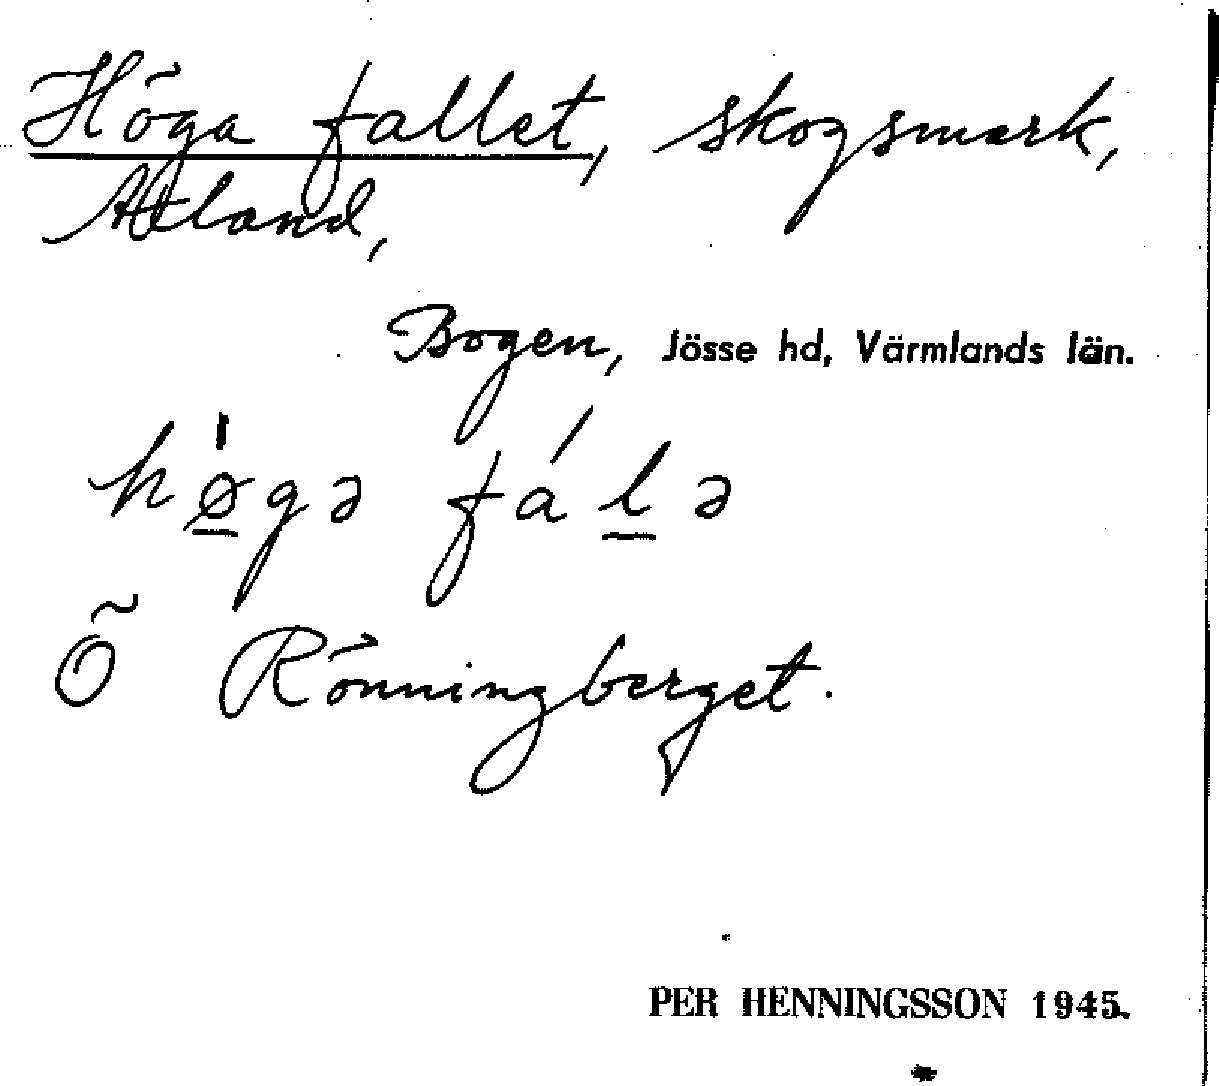 Höga fallet, skogsmark,
Åland,
Bogen, Jösse hd, Värmlands län.
hǿ̱gə fáḻə
Ö Rönningberget.
PER HENNINGSSON 1945.